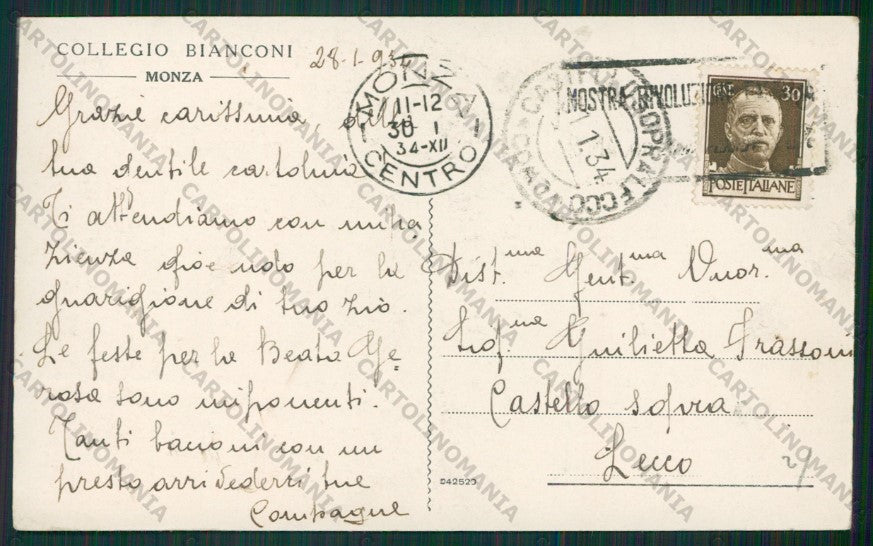 COLLEGIO BIANCONI
MONZA
28-1-934
Grazie carissima della
tua gentile cartolina
Ti attendiamo con impa
zienza gioendo per la
guarigione di tuo zio.
Le feste per la Beata Ge
rosa sono imponenti.
Tanti bacioni con un
presto arrivederci tue
Compagne
MONZA
11-12
30 I
34-XII
CENTRO
1.34
MOSTRA RIVOLUZIONE
30
POSTE ITALIANE
Dist.ma Gent.ma Onor.ma
Sig.na Giulietta Frassoni
Castello sopra
Lecco
042520
CARTOLINOMANIA